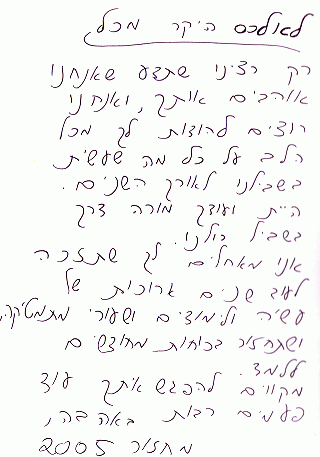 לאולכס היקר מכל
רק רצינו שתדע שאנחנו
אוהבים אותך, ואנחנו
רוצים להודות לך מכל
הלב על כל מה שעשית
בשבילנו לאורך השנים.
היית ועודך מורה דרך
בשביל כולנו.
אנו מאחלים לך שתזכה
לעוד שנים ארוכות של
עשיה ולימודים ושעורי מתמטיקה,
ושתחזור בכוחות מחודשים
ללמד.
מקווים להפגש איתך עוד
פעמים רבות באהבה,
מחזור 2005